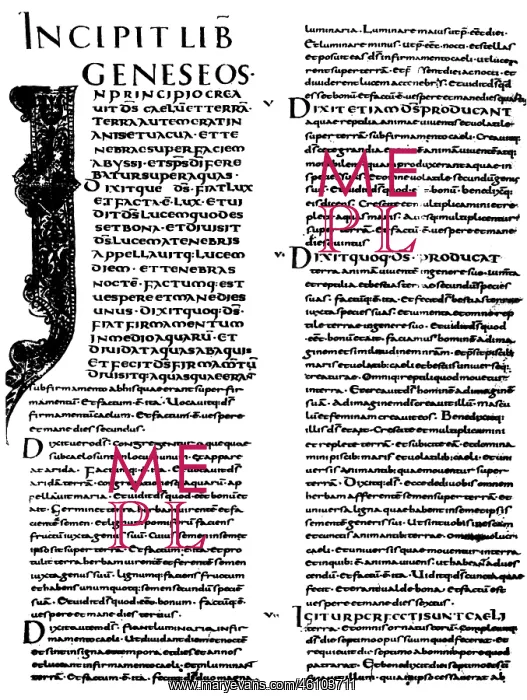 INCIPIT LIB̃
GENESEOS·
IN PRINCIPIO CREA
UIT D̄S CAELŪ ET TERRĀ·
TERRA AUTEM ERAT IN
ANIS ET UACUA· ET TE
NEBRAE SUPER FACIEM
ABYSSI· ET SP̄S DĪ FERE
BATUR SUPER AQUAS·
DIXITQUE D̄S· FIAT LUX
ET FACTA Ē LUX· ET UI
DIT D̄S LUCEM QUOD ES
SET BONA· ET DIUISIT
D̄S LUCEM A TENEBRIS
APPELLAUITQ· LUCEM
DIEM· ET TENEBRAS
NOCTĒ· FACTUMQ· EST
UESPERE ET MANE DIES
UNUS· DIXIT QUOQ· D̄S·
FIAT FIRMAMENTUM
IN MEDIO AQUARŪ· ET
DIUIDAT AQUAS AB AQUIS
ET FECIT D̄S FIRMAMĒTŪ
DIUISITQ· AQUAS QUAE ERAT
subfirmamento ab his quae erant super fir
mamentū· Et factum ē ita· Uocauitq· d̄s
firmamentum caelum· Et factum ē uespere
et mane dies secundus·
Dixit uero d̄s· Congregentur aquae quae
sub caelo sunt in locum unum· et appare
at arida· Factumq· ē ita· Et uocauit d̄s
aridā terrā·
pellauit maria· Et uidit d̄s quod eet bonū et
ait· Germinet terra herbam uirentē et fa
cientē semen· et lignum pomiferū faciens
fructū iuxta genus suū· Cuius semen in semet
ipso sit super terrā· Et factum ē ita· et pro
tulit terra herbam uirentē et ferentē semen
iuxta genus suū· Lignumq· faciens fructum
et habens unumquotq· sementē secundū speciē
suā· Et uidit d̄s quod eēt bonum· factūq· ē
uespere et mane dies tertius·
Dixit autem d̄s· fiant luminaria in fir
mamento caeli· Et diuidant diem et nocte
et sint in signa et tempora et dies et annos
et luceant in firmamento caeli· et inluminent
terrā· Et factum ē ita· fecitq· d̄s duo magna
luminaria· Luminare maius ut p̄eet diei·
Et luminare minus· ut p̄eēt nocti· et stellas
et posuit eas d̄s in firmamento caeli· ut luce
rent super terrā· Et p̄eēssent diei ac nocti· et
diuiderent lucem ac tenebras· Et uidit d̄s qd̄
esset bonū· et factū ē uespere et mane dies quart
V
DIXIT ETIAM D̄S PRODUCANT
aquae reptile animae uiuentis et uolatile
super terrā· sub firmamento caeli· Creauitq·
d̄s cete grandia et omnē animā uiuentē atq·
mouabilem quā produxerant aquae in
species suas· et omne uolatile secundū genus
suū· Et uidit d̄s quod eēt bonū· benedixitq·
eis dicens· Crescite et multiplicamini et re
plete aquas maris· Auesq· multiplicentur
super terrā· Et factū ē uespere et mane
dies quintus
VI
DIXIT QUOQ· D̄S· PRODUCAT
terra animā uiuentē in genere suo· iumta
et reptilia et bestias terrae secundū species
suas· factūq· ē ita· Et fecit d̄s bestias terrae
iuxta species suas· et iumenta et omne rep
tile terrae in genere suo· Et uidit d̄s quod
eēt bonū et ait· faciamus hominē ad ima
ginem et similitudinem nr̄am· et p̄sit piscib·
maris et uolatilib· caeli et bestiis uniuersaeq·
creaturae· Omniq· reptili quod mouetur in
terra· Et creauit d̄s hominē ad imaginē
suā· Ad imaginem d̄i creauit illū· mascu
lū et feminam creauit eos· Benedixitq·
illis d̄s et ait· Crescite et multiplicamini
et replete terrā· et subicite eā· et domina
mini piscib· maris et uolatilib· caeli· et uni
uersis animantib· quae mouentur super
terrā· Dixitq· d̄s· ecce dedi uobis omnem
herbam afferentē semen super terrā· et
uniuersa ligna quae habent in semetipsis
sementē generis sui· Ut sint uobis in escam
et cunctis animantib· terrae· Omniq· uolucri
caeli· et uniuersis quae mouentur in terra
et in quib· ē anima uiuens· ut habeant ad ues
cendū· Et factū ē ita· Uiditq· d̄s cuncta quae
fecit· et erant ualde bona· Et factū est
uespere et mane dies sextus·
VII
IGITUR PERFECTI SUNT CAELI
et terra· Et omnis ornatus eorū· Compleuitq·
d̄s die septimo opus suum quod fecerat· et
requieuit die septimo ab omni opere quod
patrarat· Et benedixit diei septimo et sci
ficauit illum· quia in ipso cessauerat ab
ME
PL
ME
PL
www.maryevans.com/46109711